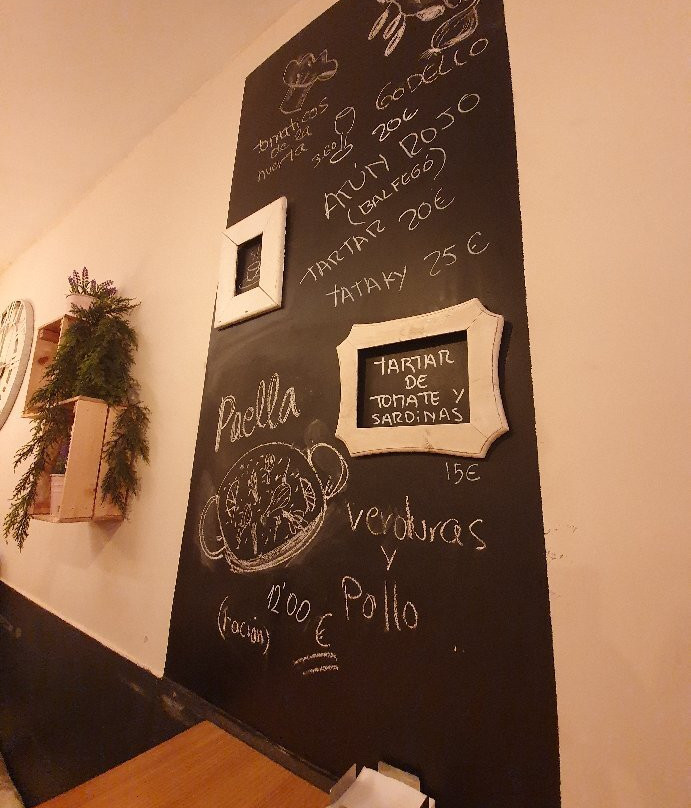 GODELLO
tomaticos
de la
huerta
3.50
20€
ATÚN ROJO
(BALFEGÓ)
TARTAR 20€
TATAKY 25€
TARTAR
DE
TOMATE Y
SARDINAS
15€
Paella
verduras
y
Pollo
12'00
€
(ración)